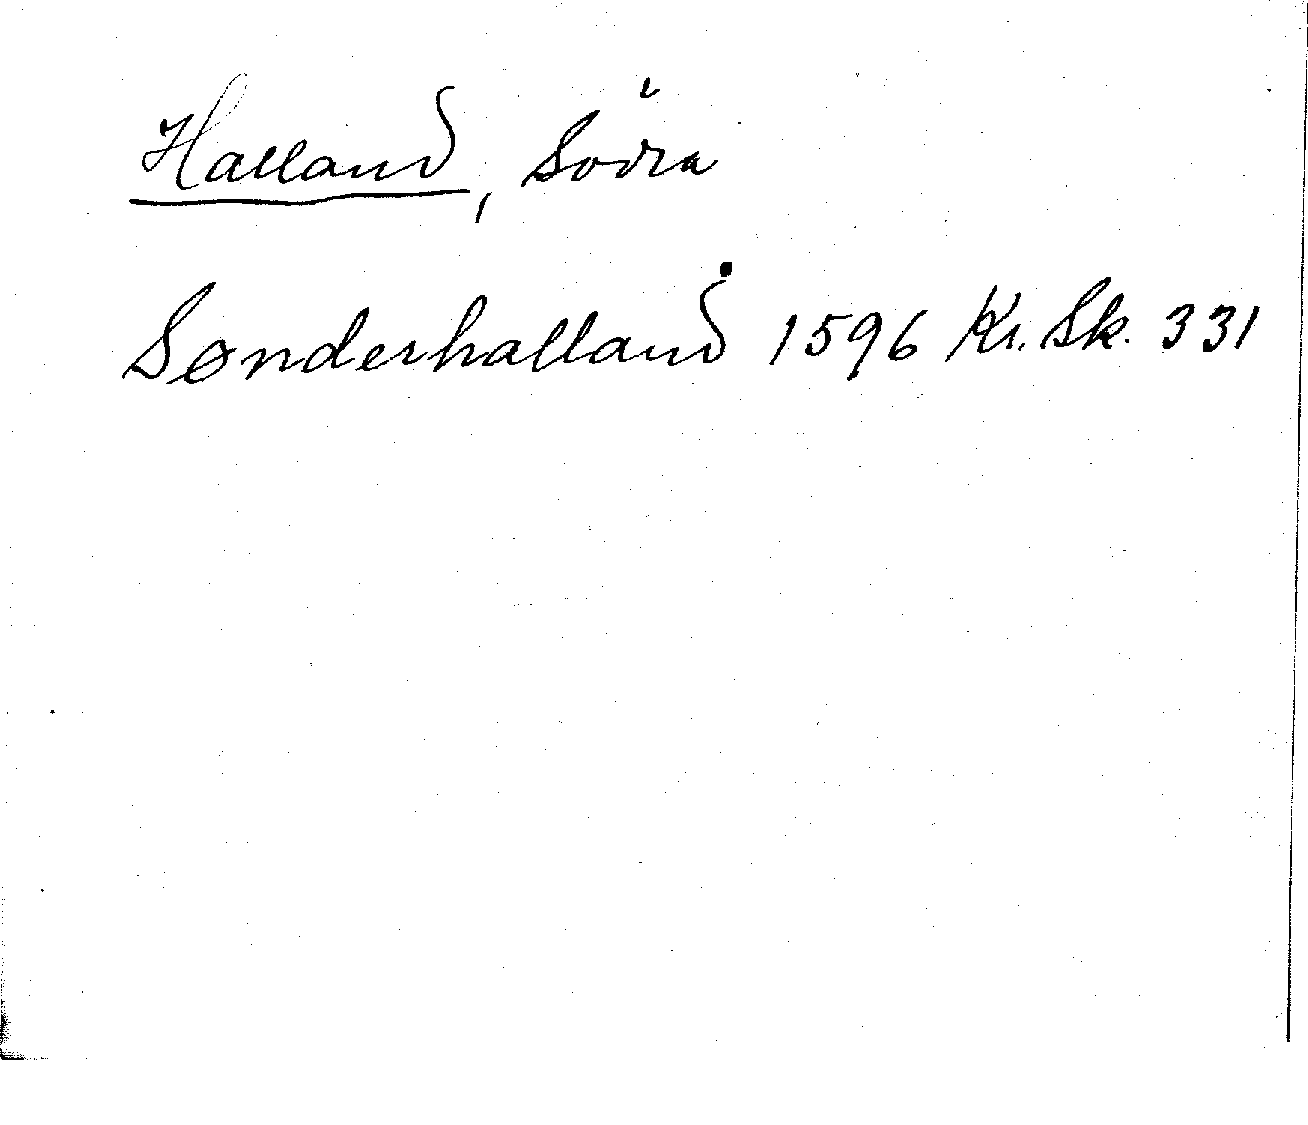 Halland, Södra
Sønderhalland 1596 Kr. Sk. 331